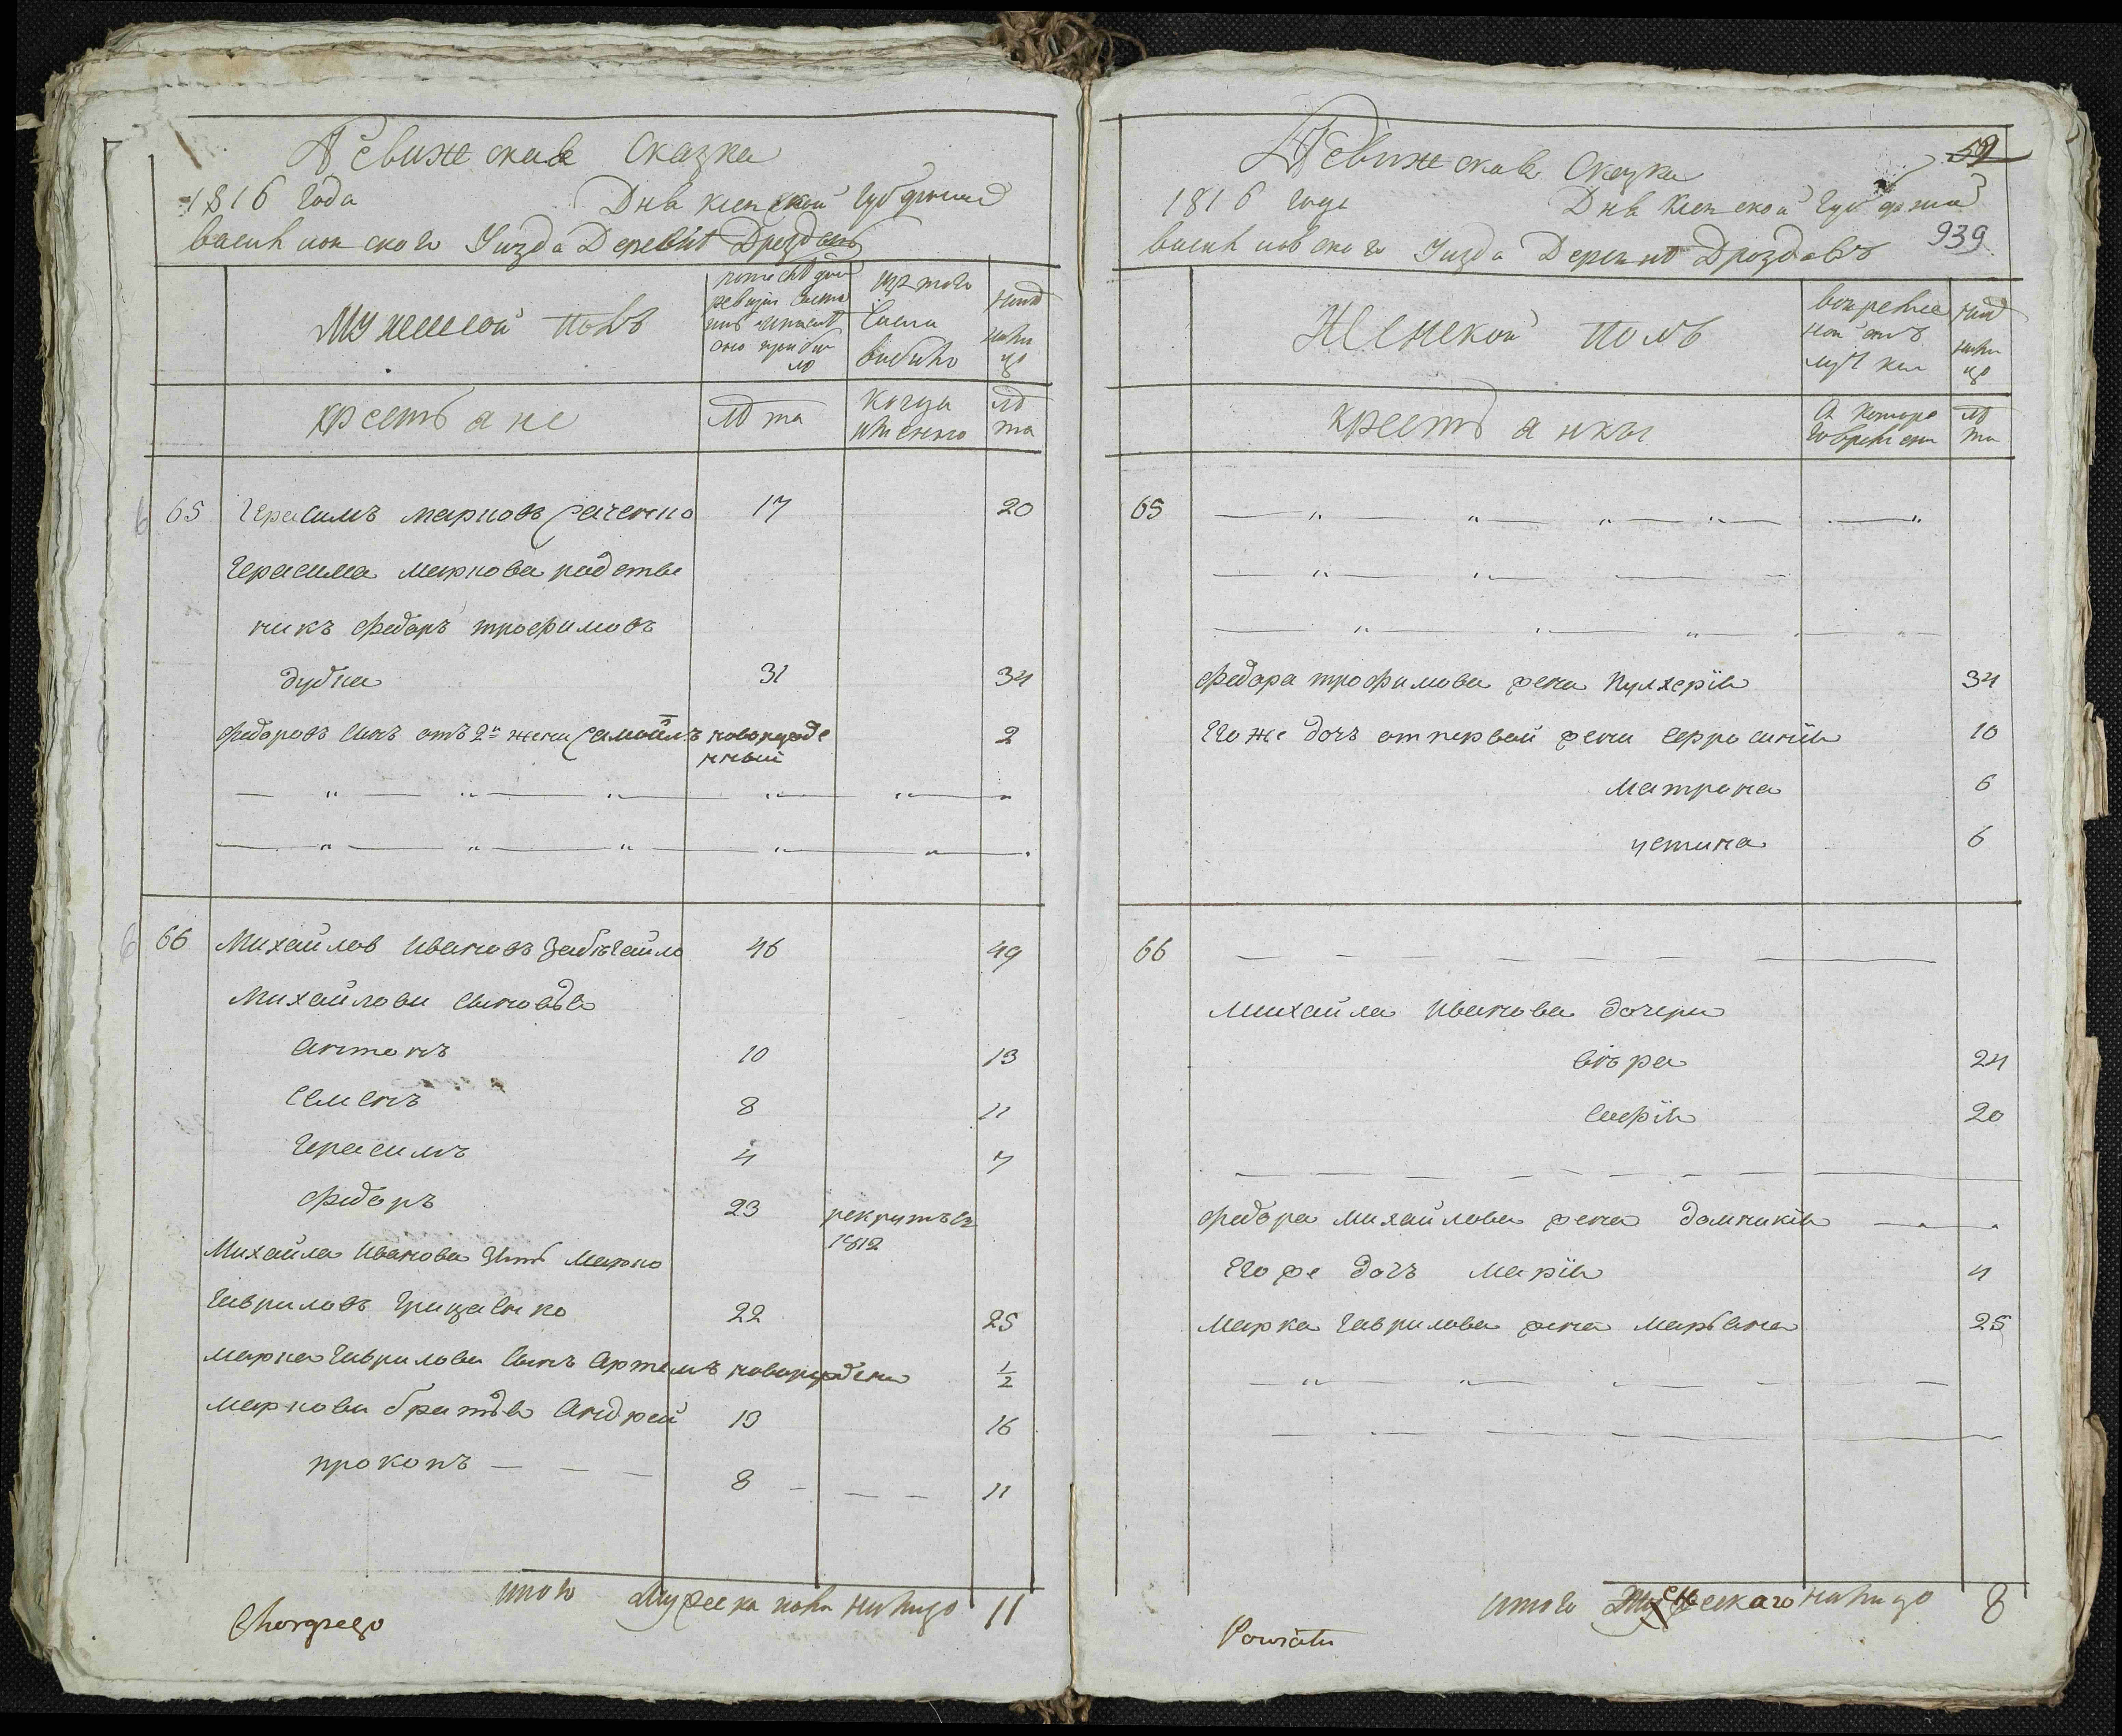 Ревижская Сказка
1816 года Дня киевской Губернии
васильковского Уизда Деревни Дроздовъ
Мужеской полъ
по последней ревизии состояло и после оно прибыло
изъ того числа выбыло
нине налицо
крестьяне
лета
когда имянно
лета
65 Герасимъ марковъ Саченко 17 20
Герасима маркова родстве
никъ Федоръ трофимовъ
дубка 31 34
Федоровъ синъ отъ 2й жени Самойлъ новорожде
нный 2
66 Михайлов Ивановъ Забегайло 46 49
Михайлови синовья
антонъ 10 13
Семенъ 8 11
Герасимъ 4 7
Федоръ 23 рекрутъ въ
1812
Михайла Иванова зять Марко
Гавриловъ Грицаенко 22 25
марка Гаврилова синъ артемъ новорожденн 1/2
маркови братья андрей 13 16
прокопъ 8 11
итого Мужеска пола налицо 11
59
Ревижская Сказка
1816 года Дня Киевской Губернии
васильковского Уизда Деревни Дроздовъ 939
Женской полъ
во временной отлучки
нине налицо
крестьянки
с которого времени
лета
65
Федора трофимова жена Пулхерия 34
Его же дочъ от первой жени Ефросиния 10
матрона 6
устина 6
66
михайла Иванова дочери
вера 24
София 20
Федора михайлова жена домникия
Его же дочъ мария 4
Марка Гаврилова жена марьяна 25
итого женскаго налицо 8
Powiatu